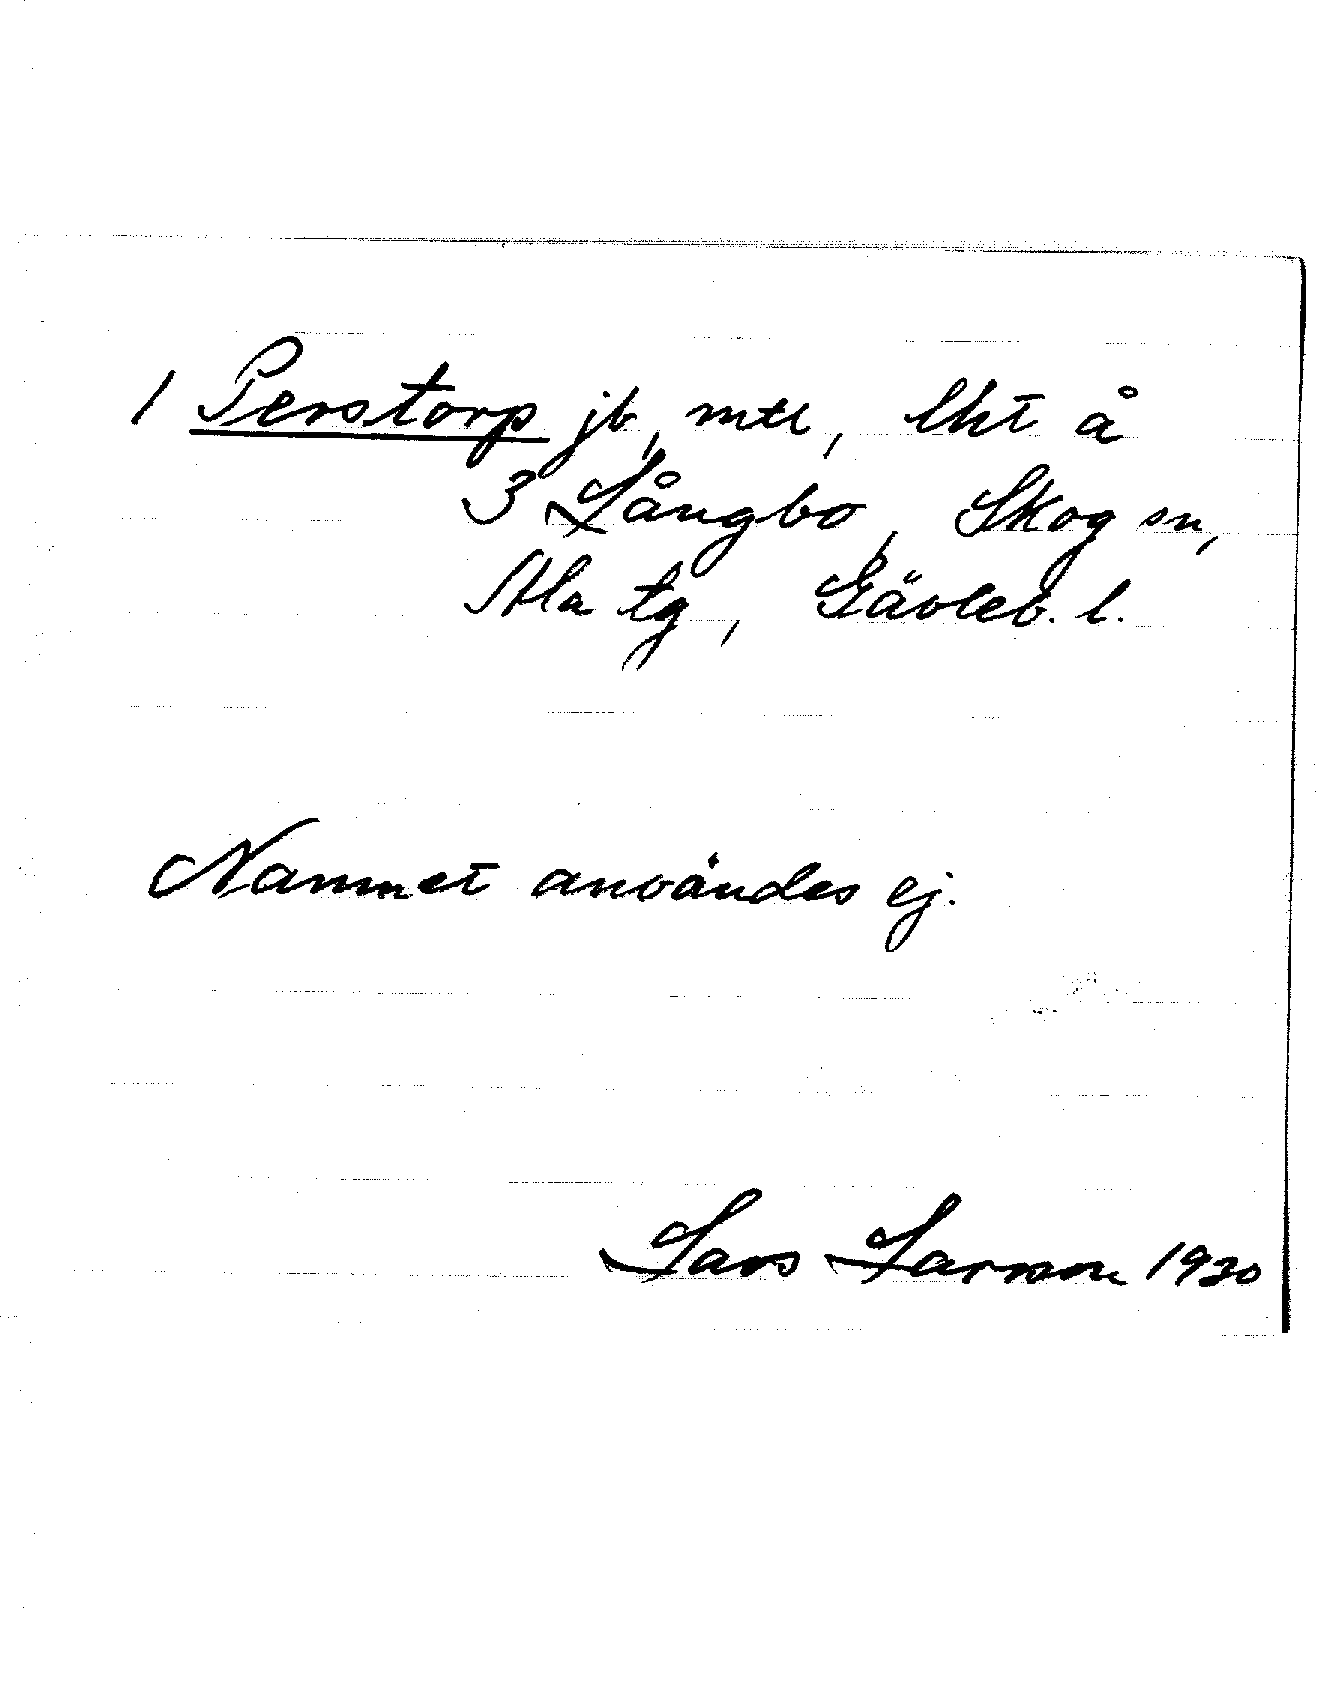 1 Perstorp jb, mtl, lht å
3 Långbo, Skog sn,
Ala tg, Gävleb. l.
Namnet användes ej.
Lars Larsson 1930